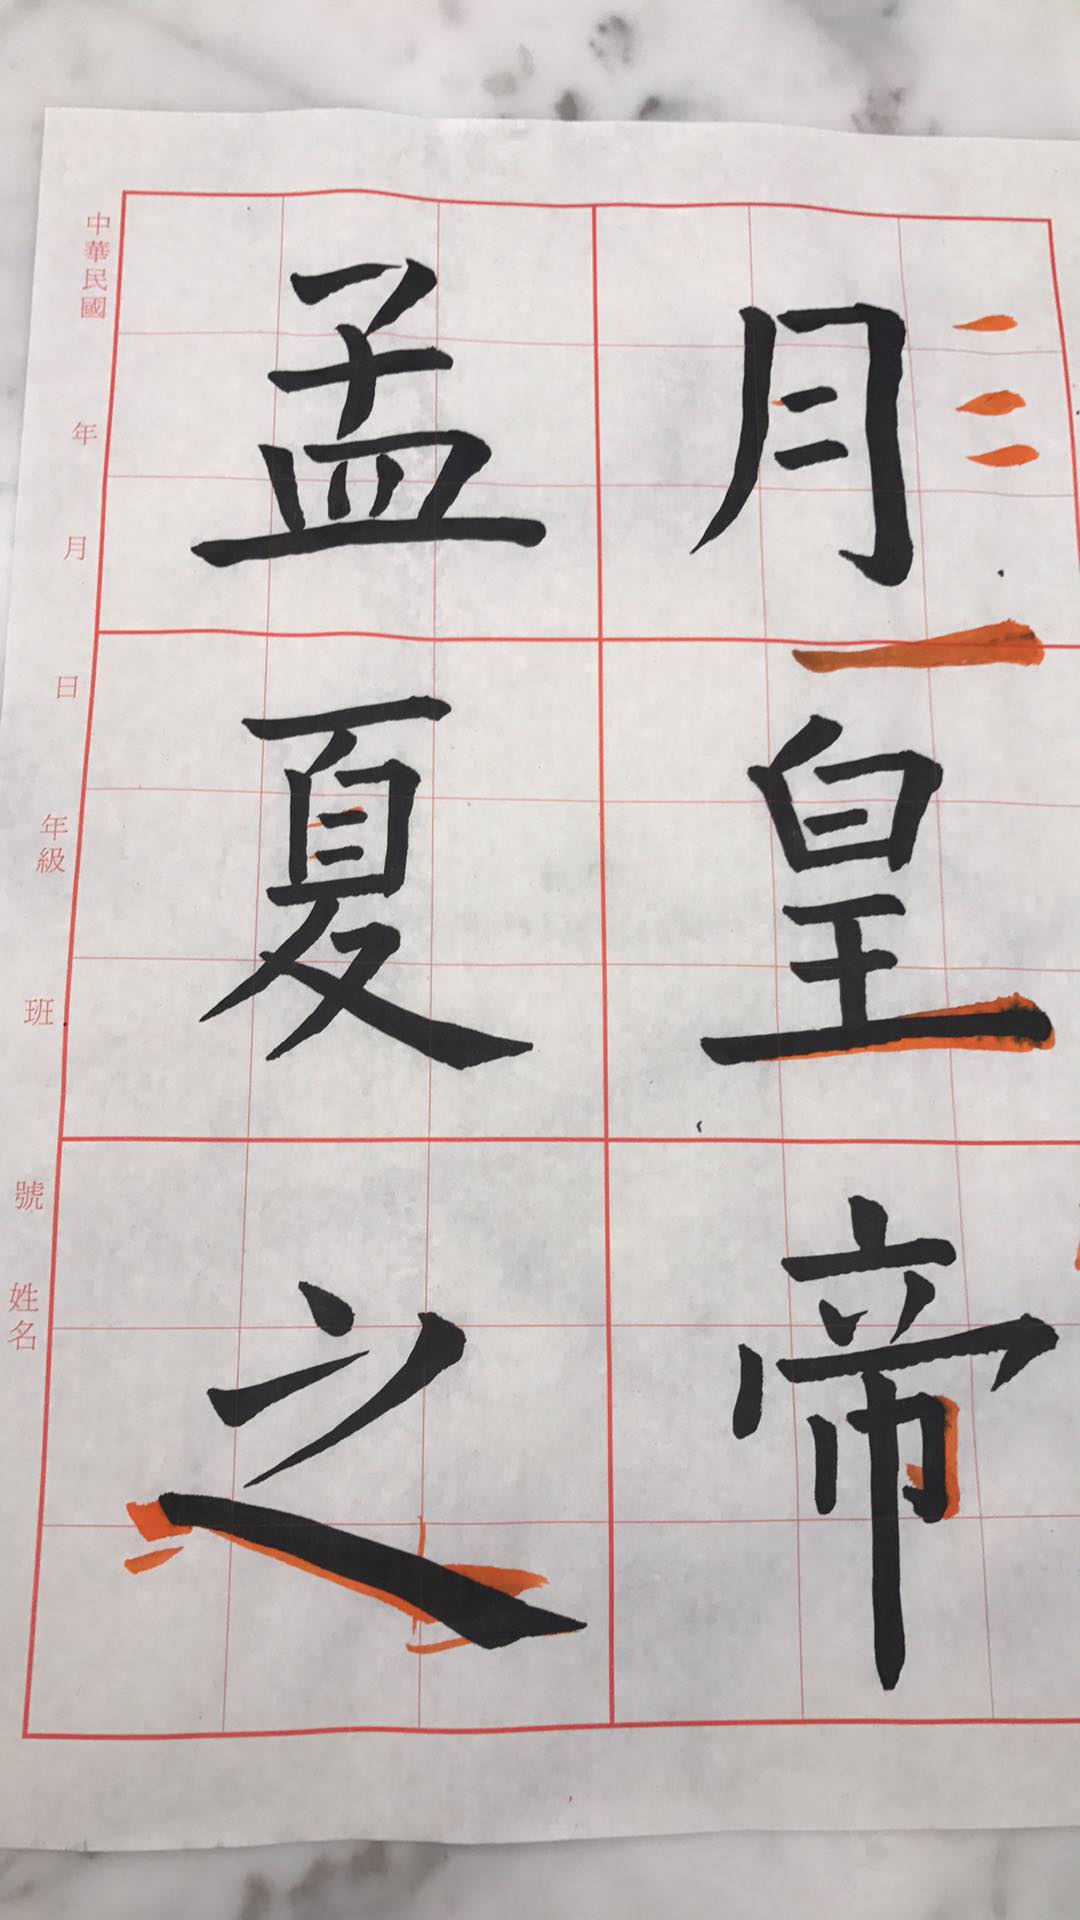 月皇帝
孟夏之
中華民國 年 月 日 年級 班 號 姓名